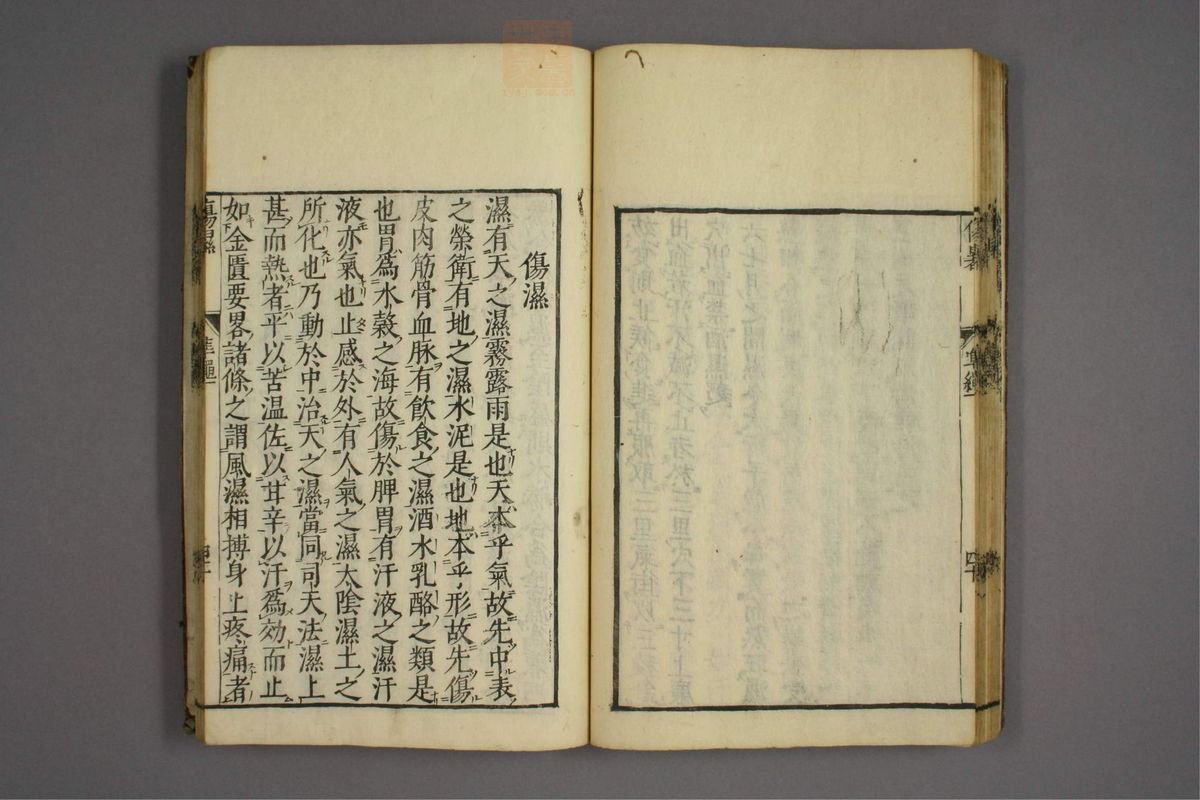 傷暑
四十
傷濕
濕有天之濕霧露雨是也天本乎氣故先中表
之榮衛有地之濕水泥是也地本乎形故先傷
皮肉筋骨血脉有飲食之濕酒水乳酪之類是
也胃爲水穀之海故傷於脾胃有汗液之濕汗
液亦氣也止感於外有人氣之濕太陰濕土之
所化也乃動於中治天之濕當同司天法濕上
甚而熱者平以苦温佐以甘辛以汗爲効而止
如金匱要畧諸條之謂風濕相搏身上疼痛者
傷濕